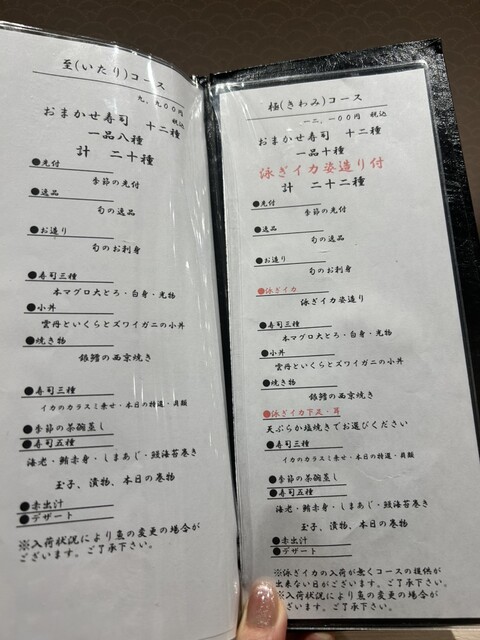 至(いたり)コース
九、九〇〇円 税込
おまかせ寿司 十二種
一品八種
計 二十種
●先付
季節の先付
●逸品
旬の逸品
●お造り
旬のお刺身
●寿司三種
本マグロ大とろ・白身・光物
●小丼
雲丹といくらとズワイガニの小丼
●焼き物
銀鱈の西京焼き
●寿司三種
イカのカラスミ乗せ・本日の特選・貝類
●季節の茶碗蒸し
●寿司五種
海老・鮪赤身・しまあじ・鰻海苔巻き
玉子、漬物、本日の巻物
●赤出汁
●デザート
※入荷状況により魚の変更の場合が
ございます。ご了承下さい。
極(きわみ)コース
一二、一〇〇円 税込
おまかせ寿司 十二種
一品十種
泳ぎイカ姿造り付
計 二十二種
●先付
季節の先付
●逸品
旬の逸品
●お造り
旬のお刺身
●泳ぎイカ
泳ぎイカ姿造り
●寿司三種
本マグロ大とろ・白身・光物
●小丼
雲丹といくらとズワイガニの小丼
●焼き物
銀鱈の西京焼き
●泳ぎイカ下足・耳
天ぷらか塩焼きでお選びください
●寿司三種
イカのカラスミ乗せ・本日の特選・貝類
●季節の茶碗蒸し
●寿司五種
海老・鮪赤身・しまあじ・鰻海苔巻き
玉子、漬物、本日の巻物
●赤出汁
●デザート
※泳ぎイカの入荷が無くコースの提供が
出来ない日がございます。ご了承下さい。
※入荷状況により魚の変更の場合が
ございます。ご了承下さい。